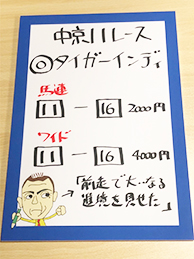 中京11レース
◎タイガーインディ
馬連
11 ― 16 2000円
ワイド
11 ― 16 4000円
→「前走で大いなる
進境を見せた」